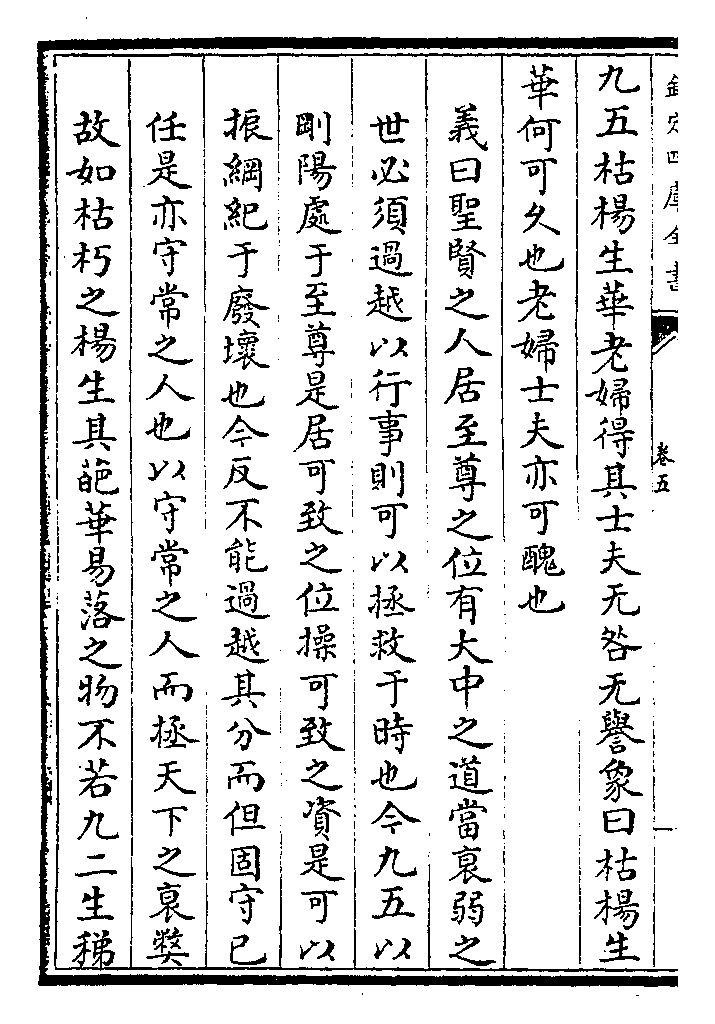 欽定四庫全書
卷五
九五枯楊生華老婦得其士夫无咎无譽象曰枯楊生
華何可久也老婦士夫亦可醜也
義曰聖賢之人居至尊之位有大中之道當衰弱之
世必須過越以行事則可以拯救于時也今九五以
剛陽處于至尊是居可致之位操可致之資是可以
振綱紀于廢壞也今反不能過越其分而但固守已
任是亦守常之人也以守常之人而極天下之衰弊
故如枯朽之楊生其葩華易落之物不若九二生稊